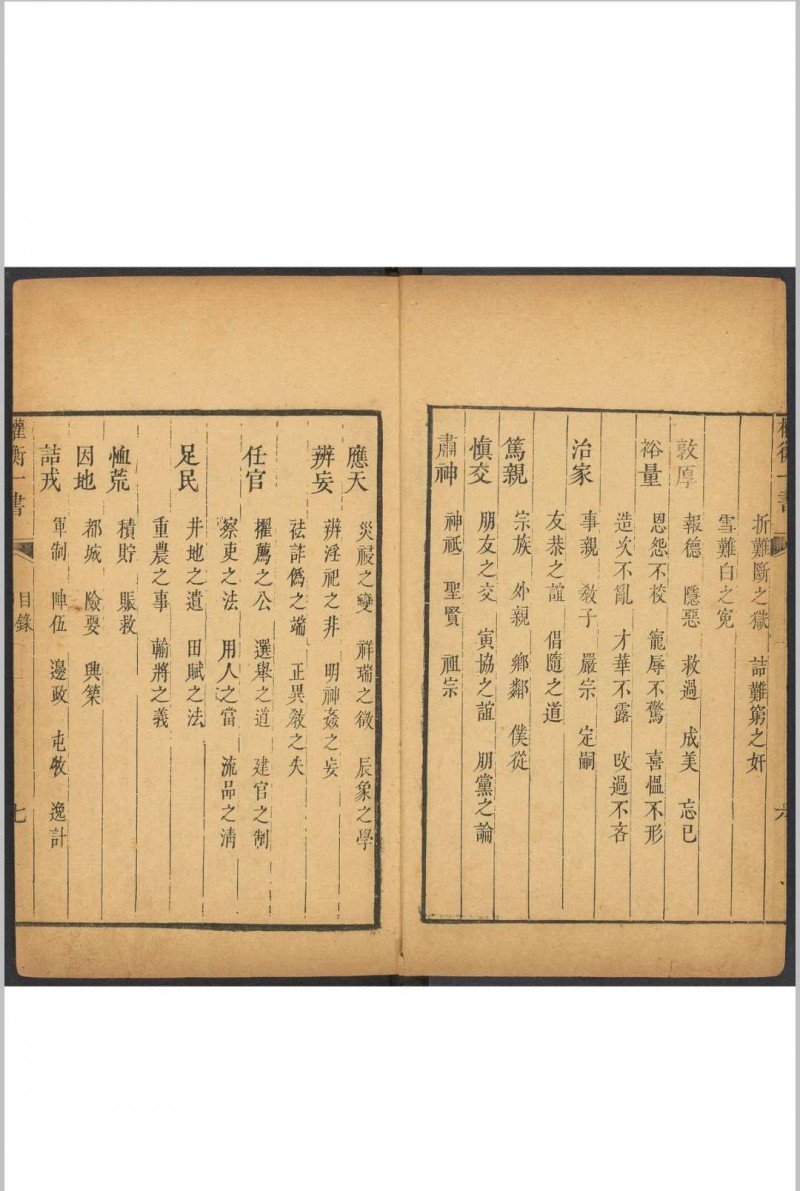 折難斷之獄　詰難窮之奸
雪難白之冤
敦厚　報德　隱惡　救過　成美　忘己
裕量　恩怨不校　寵辱不驚　喜慍不形
造次不亂　才華不露　改過不吝
治家　事親　敎子　嚴宗　定嗣
友恭之誼　倡隨之道
篤親　宗族　外親　鄉鄰　僕從
慎交　朋友之交　寅協之誼　朋黨之論
肅神　神祗　聖賢　祖宗
六
應天　災祲之變　祥瑞之徵　辰象之學
辨妄　辨淫祀之非　明神姦之妄
祛詐僞之端　正異敎之失
任官　擢薦之公　選舉之道　建官之制
察吏之法　用人之當　流品之淸
足民　井地之遺　田賦之法
重農之事　輸將之義
恤荒　積貯　賑救
因地　都城　險要　興築
詰戎　軍制　陣伍　邊政　屯牧　逸計
權衡一書　目錄　七